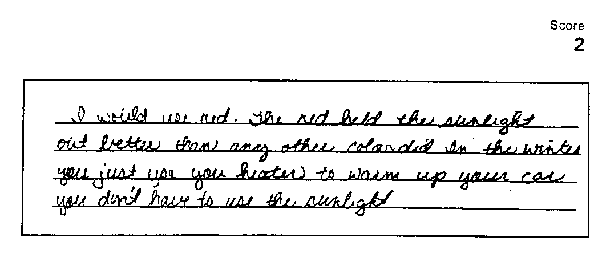 Score
2
I would use red. The red held the sunlight
out better than any other colar did In the winter
you just use you heater to warm up your car
you don't have to use the sunlight